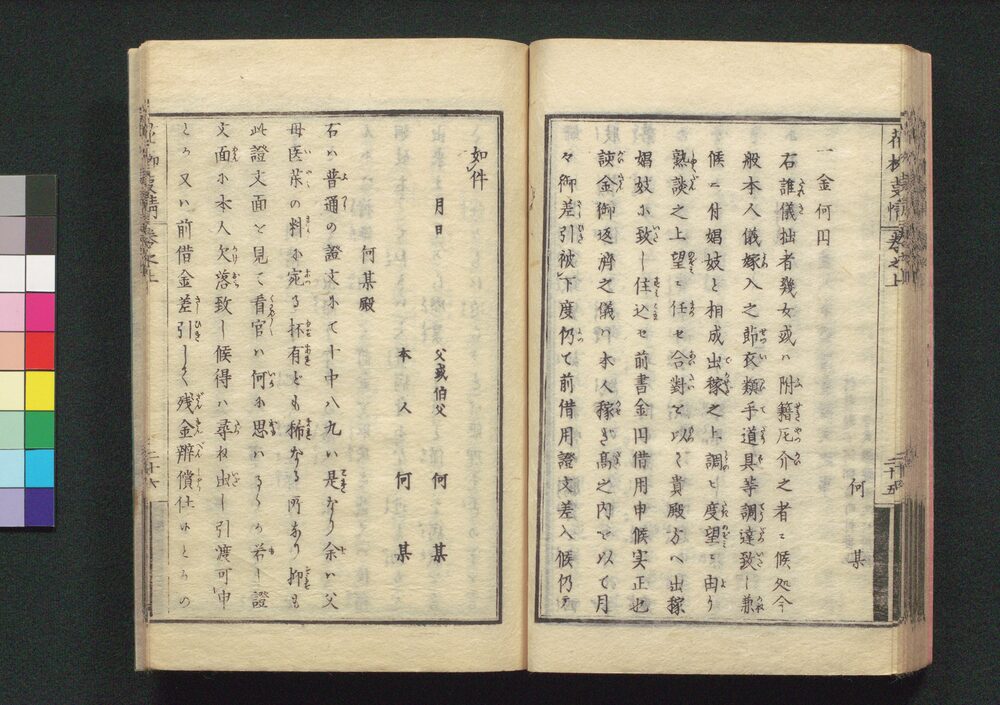 何某
一金何円
右誰儀拙者幾女或ハ附籍厄介之者ニ候処今
般本人儀嫁入之節衣類手道具等調達致し兼
候ニ付娼妓と相成出稼之上調ヒ度望ニ由り
熟談之上望ニ任セ合對を以て貴殿方へ出稼
娼妓に致し住込セ前書金円借用申候実正也
該金御返済之儀ハ本人稼ぎ高之内を以て月
々御差引被下度仍て前借用證文差入候仍而
如件
月日
父或伯父 何某
本人 何某
何某殿
右ハ普通の證文にて十中八九ハ是なり余ハ父
母医薬の料に宛る抔有ども稀なる所あり抑も
此證文面を見て看官ハ何に思ハるゝか若し證
文面に本人欠落致し候得ハ尋ね出し引渡可申
とか又ハ前借金差引して残金辨償仕らんとかの
巻之上
二十五